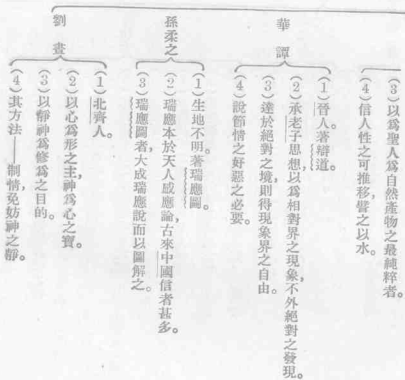 (3)以爲聖人爲自然產物之最純粹者。
(4)信人性之可推移譬之以水。
華譚
(1)晉人。著辯道。
(2)承老子思想以爲相對界之現象不外絕對之發現。
(3)達於絕對之境則得現象界之自由。
(4)說節情之好惡之必要。
孫柔之
(1)生地不明。著瑞應圖。
(2)瑞應本於天人感應論古來中國信者甚多。
(3)瑞應圖者大成瑞應說而以圖解之。
劉晝
(1)北齊人。
(2)以心爲形之主神爲心之寶。
(3)以靜神爲修爲之目的。
(4)其方法——制情免妨神之靜。